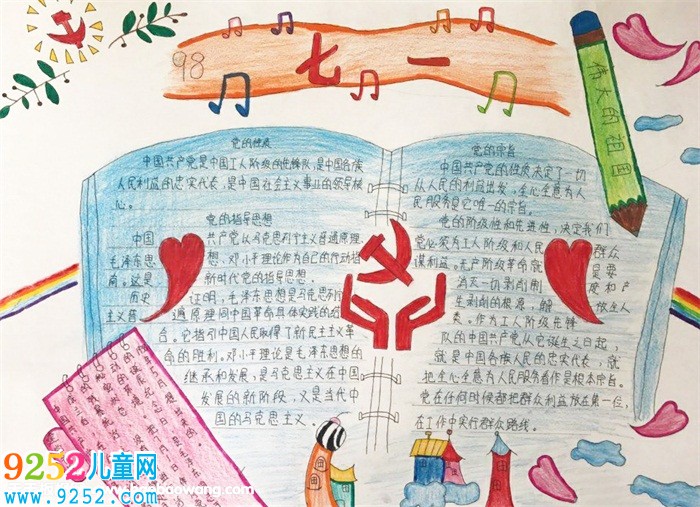 98
七一
伟大的祖国
党的性质
中国共产党是中国工人阶级的先锋队,是中国各族
人民利益的忠实代表,是中国社会主义事业的领导核
心。
党的指导思想
中国共产党从马克思列宁主义普通原理、
毛泽东思想、邓小平理论作为自己的行动指
南。这是新时代党的指导思想。
历史证明,毛泽东思想是马克思列宁
主义普遍原理同中国革命具体实践的结
合。它指引中国人民取得了新民主主义革
命的胜利。邓小平理论是毛泽东思想的
继承和发展,是马克思主义在中国
发展的新阶段,义是当代中
国的马克思主义.
党的宗旨
中国共产党的性质决定了一切
从人民的利益出发,全心全意为人
民服务是它唯一的宗旨。
党的阶级性和先进性,决定我们
党必须为工人阶级和人民群众
谋利益。无产阶级革命就是要
消灭一切剥削制度和产
生剥削的根源,解放全人
类。作为工人阶级先锋
队的中国共产党从它诞生之日起,
就是中国各族人民的忠实代表,就
把全心全意为人民服务看作是根本宗旨。
党在任何时候都把群众利益放在第一位,
在工作中实行群众路线。
9252儿童网
www.9252.com